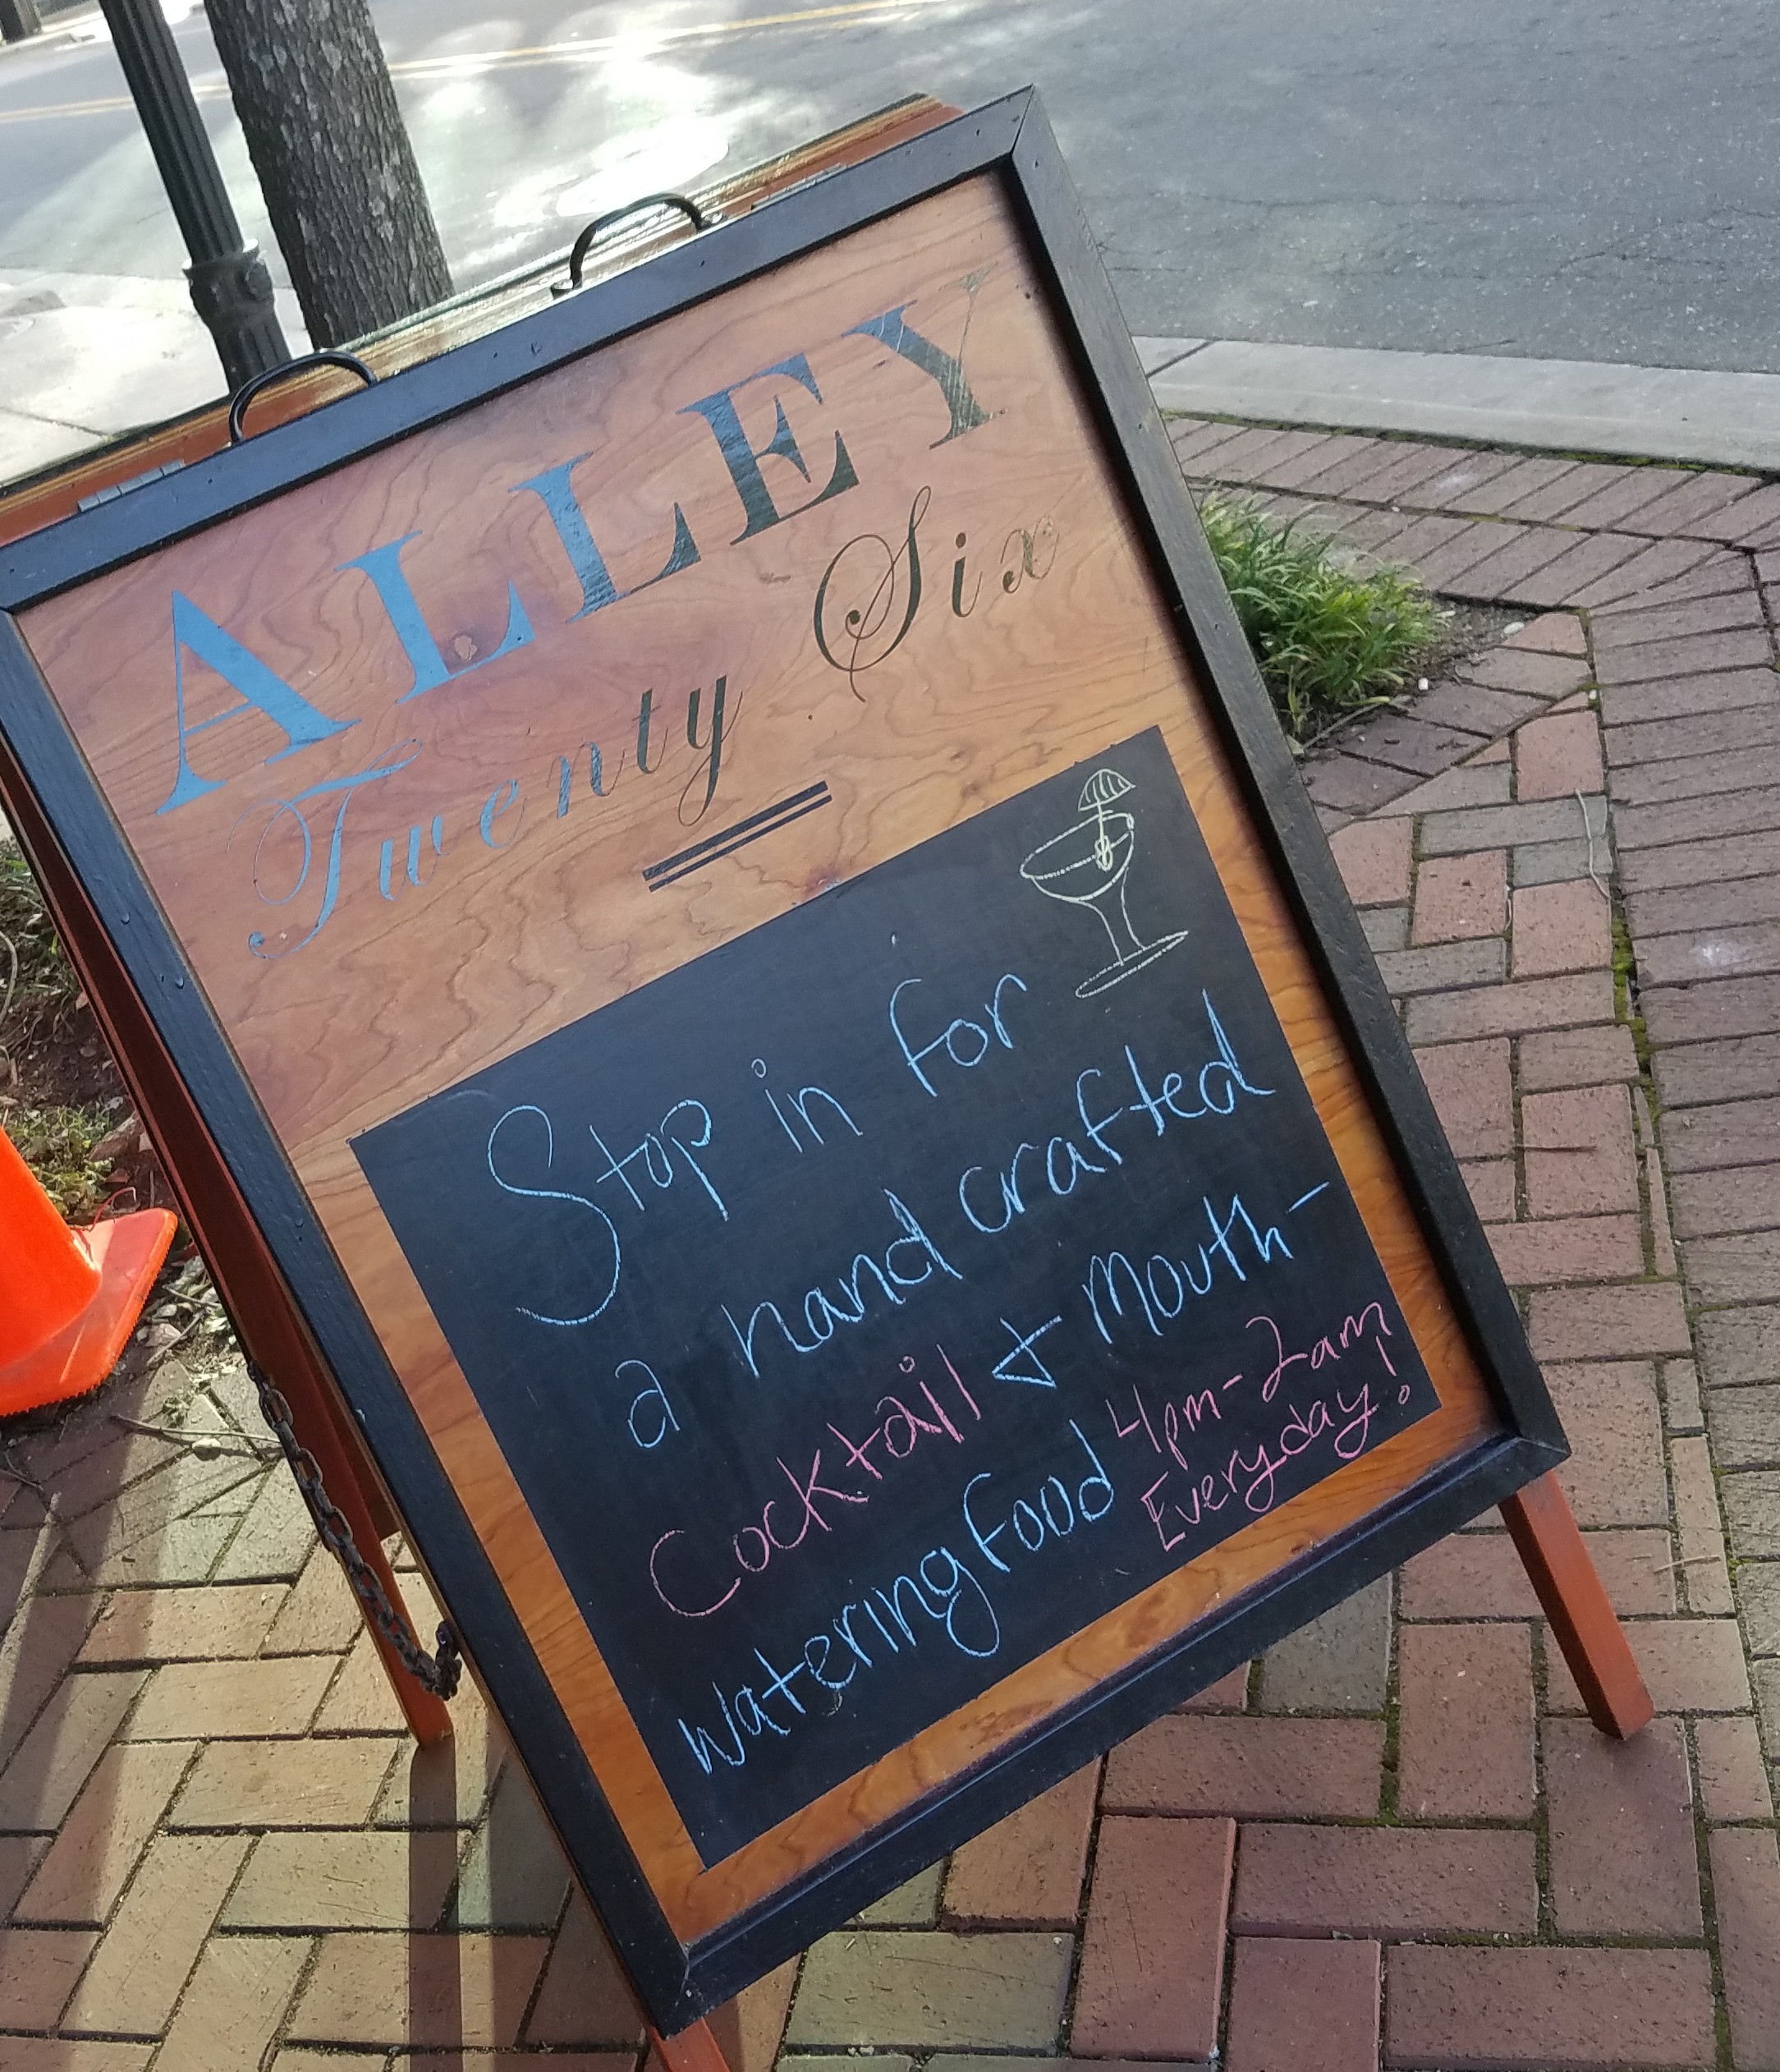 ALLEY
Twenty Six
Stop in for
a hand crafted
Cocktail & Mouth-
watering food
4pm-2am
Everyday!